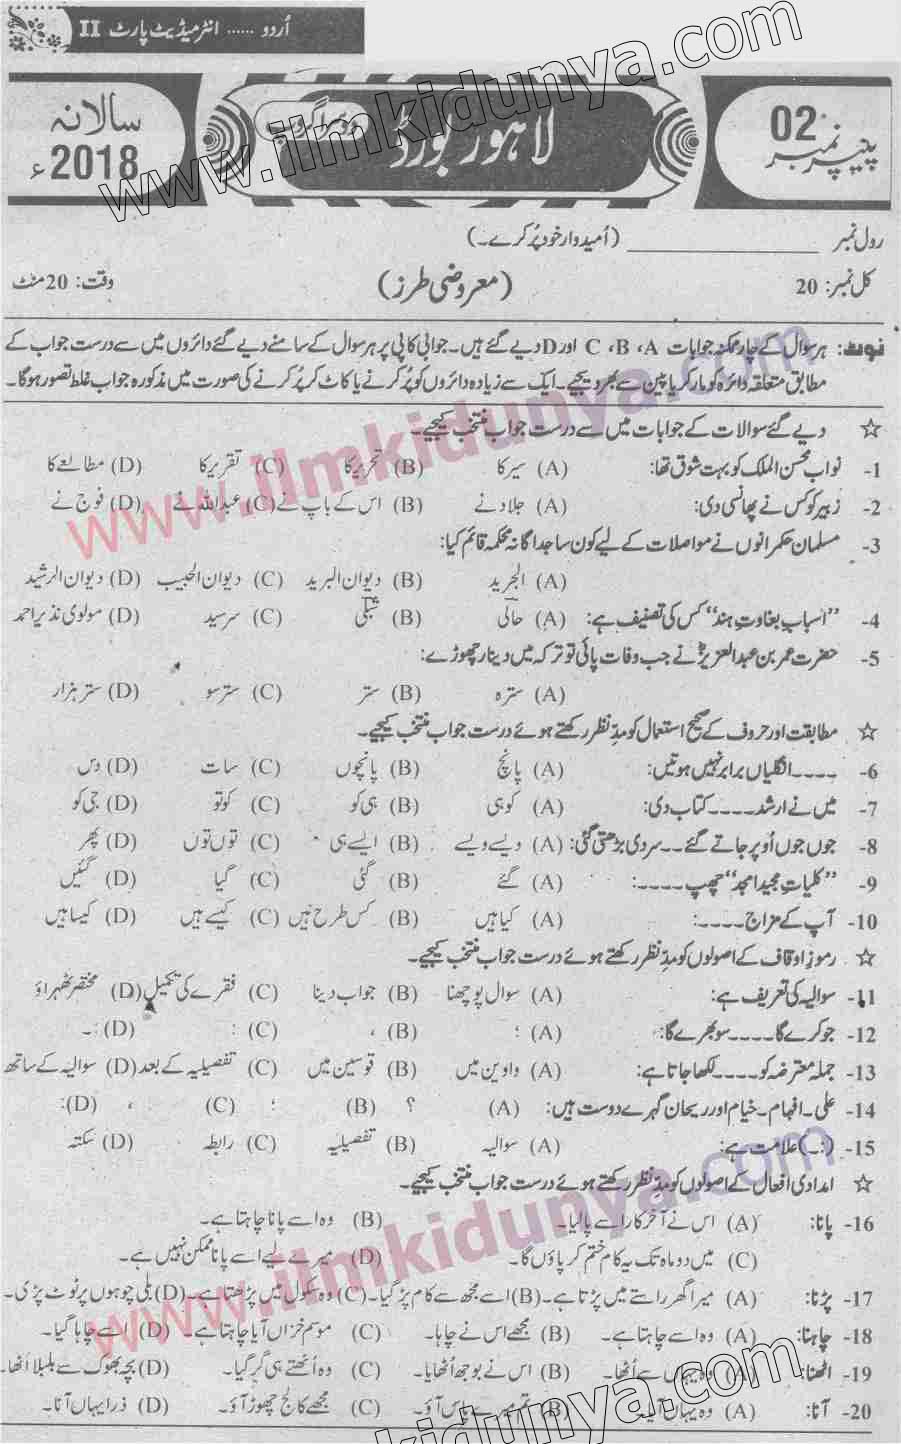 اُردو ...... انٹرمیڈیٹ پارٹ II
پیپر نمبر 02
لاہور بورڈ
سالانہ 2018ء
رول نمبر ____________ (اُمیدوار خود پُر کرے۔)
کل نمبر: 20 (معروضی طرز) وقت: 20 منٹ
نوٹ: ہر سوال کے چار ممکنہ جوابات A، B، C اور D دیے گئے ہیں۔ جوابی کاپی پر ہر سوال کے سامنے دیے گئے دائروں میں سے درست جواب کے
مطابق متعلقہ دائرہ کو مارکر یا پین سے بھر دیجیے۔ ایک سے زیادہ دائروں کو پُر کرنے یا کاٹ کر پُر کرنے کی صورت میں مذکورہ جواب غلط تصور ہوگا۔
☆ دیے گئے سوالات کے جوابات میں سے درست جواب منتخب کیجیے۔
1- نواب محسن الملک کو بہت شوق تھا: (A) سیر کا (B) تحریر کا (C) تقریر کا (D) مطالعے کا
2- زبیر کو کس نے پھانسی دی: (A) جلاد نے (B) اس کے باپ نے (C) عبداللہ نے (D) فوج نے
3- مسلمان حکمرانوں نے مواصلات کے لیے کون سا جداگانہ محکمہ قائم کیا:
(A) الجرید (B) دیوان البرید (C) دیوان الحبیب (D) دیوان الرشید
4- "اسبابِ بغاوتِ ہند" کس کی تصنیف ہے: (A) حالی (B) شبلی (C) سرسید (D) مولوی نذیر احمد
5- حضرت عمر بن عبدالعزیزؒ نے جب وفات پائی تو ترکہ میں دینار چھوڑے:
(A) سترہ (B) ستر (C) ستر سو (D) ستر ہزار
☆ مطابقت اور حروف کے صحیح استعمال کو مدِّ نظر رکھتے ہوئے درست جواب منتخب کیجیے۔
6- ---- انگلیاں برابر نہیں ہوتیں: (A) پانچ (B) پانچوں (C) سات (D) دس
7- میں نے ارشد ---- کتاب دی: (A) کو ہی (B) ہی کو (C) کو تو (D) جی کو
8- جوں جوں اُوپر جاتے گئے -- سردی بڑھتی گئی: (A) ویسے ویسے (B) ایسے ہی (C) توں توں (D) پھر
9- "کلیاتِ مجید امجد" چھپ ----: (A) گئے (B) گئی (C) گیا (D) گئیں
10- آپ کے مزاج ----: (A) کیا ہیں (B) کس طرح ہیں (C) کیسے ہیں (D) کیسا ہیں
☆ رموزِ اوقاف کے اصولوں کو مدِّ نظر رکھتے ہوئے درست جواب منتخب کیجیے۔
11- سوالیہ کی تعریف ہے: (A) سوال پوچھنا (B) جواب دینا (C) فقرے کی تکمیل (D) مختصر ٹھہراؤ
12- جو کرے گا ---- سو بھرے گا: (A) ؛ (B) ، (C) : (D) :۔
13- جملہ معترضہ کو ---- لکھا جاتا ہے: (A) واوین میں (B) قوسین میں (C) تفصیلیہ کے بعد (D) سوالیہ کے ساتھ
14- علی۔ افہام۔ خیام اور ریحان گہرے دوست ہیں: (A) (B) ؟ (C) ؛ ، (D) :
15- (:۔) علامت ہے: (A) سوالیہ (B) تفصیلیہ (C) رابطہ (D) سکتہ
☆ امدادی افعال کے اصولوں کو مدِّ نظر رکھتے ہوئے درست جواب منتخب کیجیے۔
16- پانا: (A) اس نے آخر کار اسے پا لیا۔ (B) وہ اسے پانا چاہتا ہے۔
(C) میں دو ماہ تک یہ کام ختم کر پاؤں گا۔ (D) میرے لیے اسے پانا ممکن نہیں ہے۔
17- پڑنا: (A) میرا گھر راستے میں پڑتا ہے۔ (B) اسے مجھ سے کام پڑ گیا۔ (C) وہ سکول میں پڑھتا ہے۔ (D) بلی چوہوں پر ٹوٹ پڑی۔
18- چاہنا: (A) وہ اسے چاہتا ہے۔ (B) مجھے اس نے چاہا۔ (C) موسم خزاں آیا چاہتا ہے۔ (D) اسے چاہا گیا۔
19- اٹھنا: (A) وہ یہاں سے اُٹھا۔ (B) اس نے بوجھ اُٹھایا۔ (C) وہ اُٹھتے ہی گر گیا۔ (D) بچہ بھوک سے بلبلا اُٹھا۔
20- آنا: (A) وہ یہاں آیا۔ (B) تم میرے پاس آؤ۔ (C) مجھے کالج چھوڑ آؤ۔ (D) ذرا یہاں آنا۔
www.ilmkidunya.com
www.ilmkidunya.com
www.ilmkidunya.com